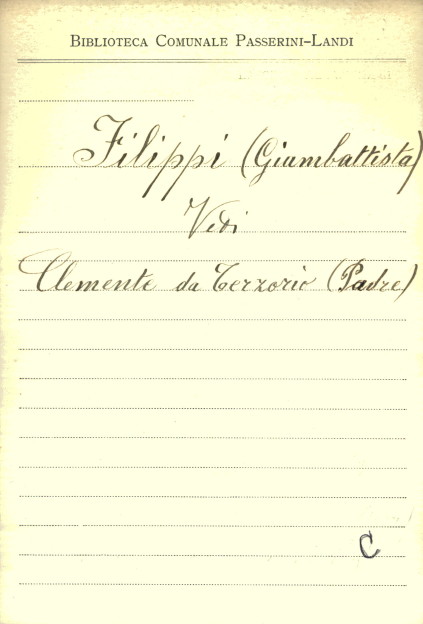 BIBLIOTECA COMUNALE PASSERINI-LANDI
Filippi (Giambattista)
Vedi
Clemente da Terzorio (Padre)
C